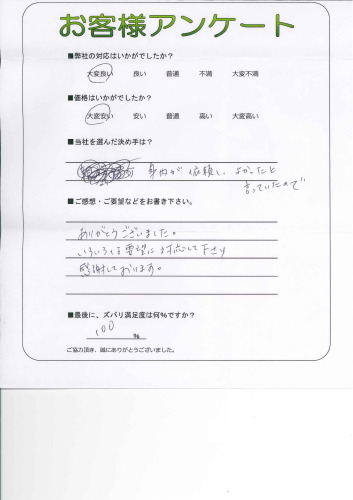 お客様アンケート
■弊社の対応はいかがでしたか?
大変良い 良い 普通 不満 大変不満
■価格はいかがでしたか?
大変安い 安い 普通 高い 大変高い
■当社を選んだ決め手は?
身内が依頼し、よかったと
言っていたので
■ご感想・ご要望などをお書き下さい。
ありがとうございました。
いろいろな要望に対応して下さり
感謝しております。
■最後に、ズバリ満足度は何%ですか?
100 %
ご協力頂き、誠にありがとうございました。